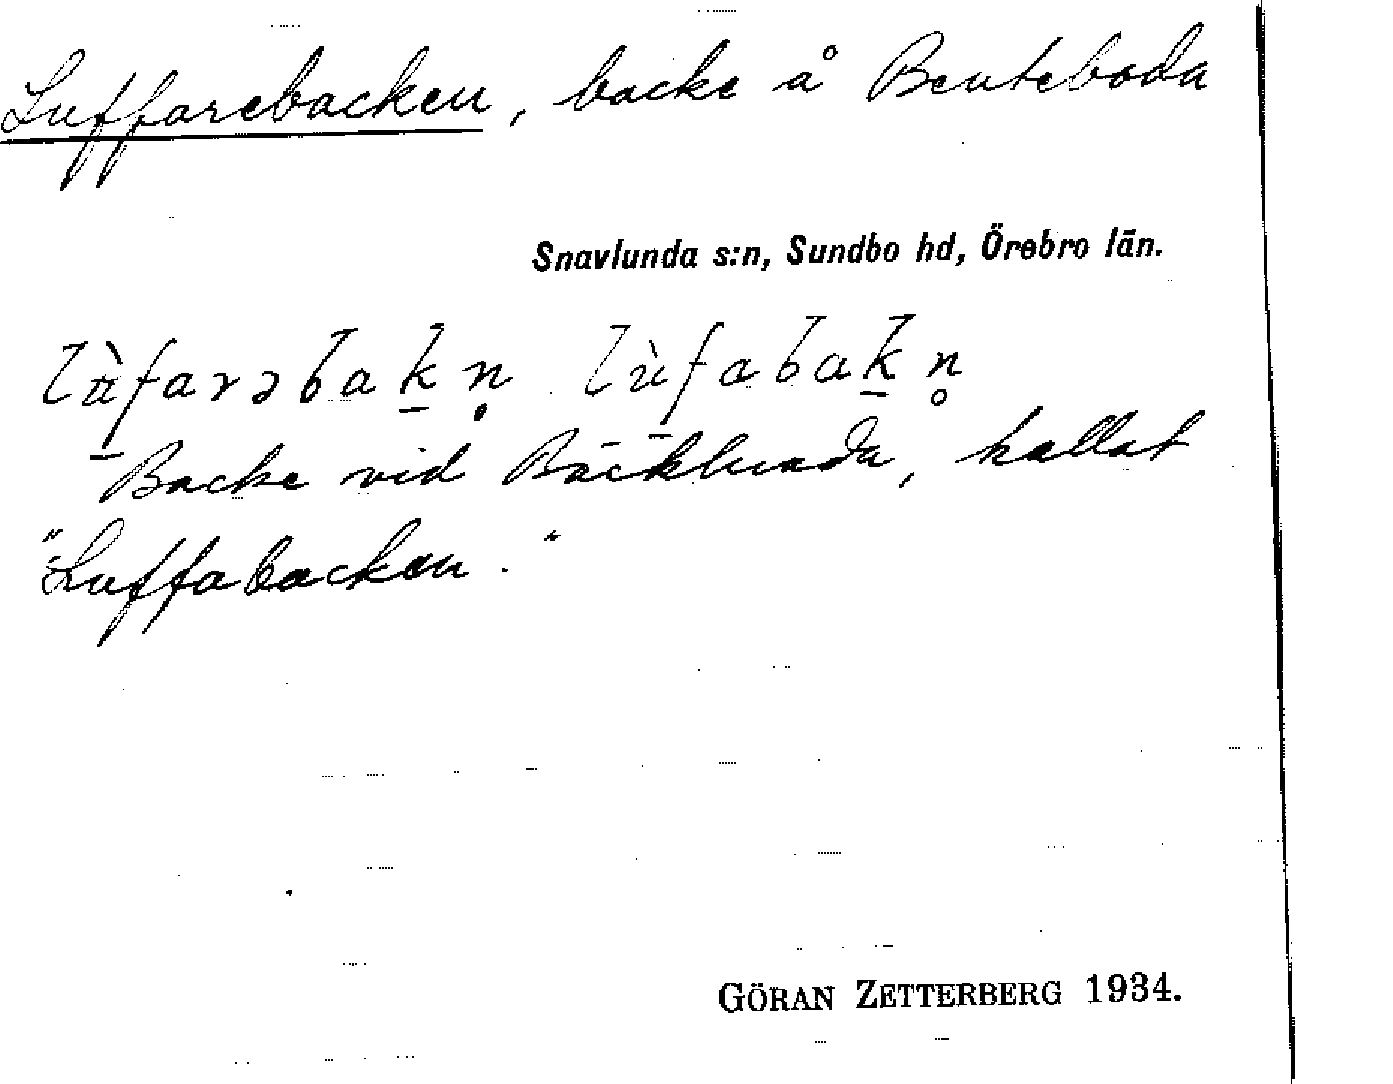 Luffarebacken, backe å Benteboda
Snavlunda s:n, Sundbo hd, Örebro län.
lùfarəbak̲n̥ lùfabak̲n̥
Backe vid Bäcklunda, kallat
"Luffabacken."
GÖRAN ZETTERBERG 1934.